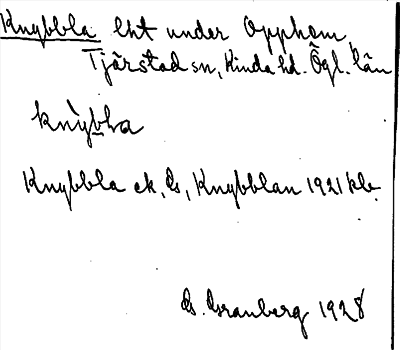 Knybbla lht under Opphem,
Tjärstad sn, Kinda hd. Ögl. län
knỳbla
Knybbla ek, G, Knybblan 1921 kb
G. Granberg 1928